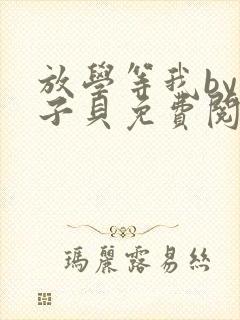 放學等我by
子貝免費閱
瑪麗露易絲